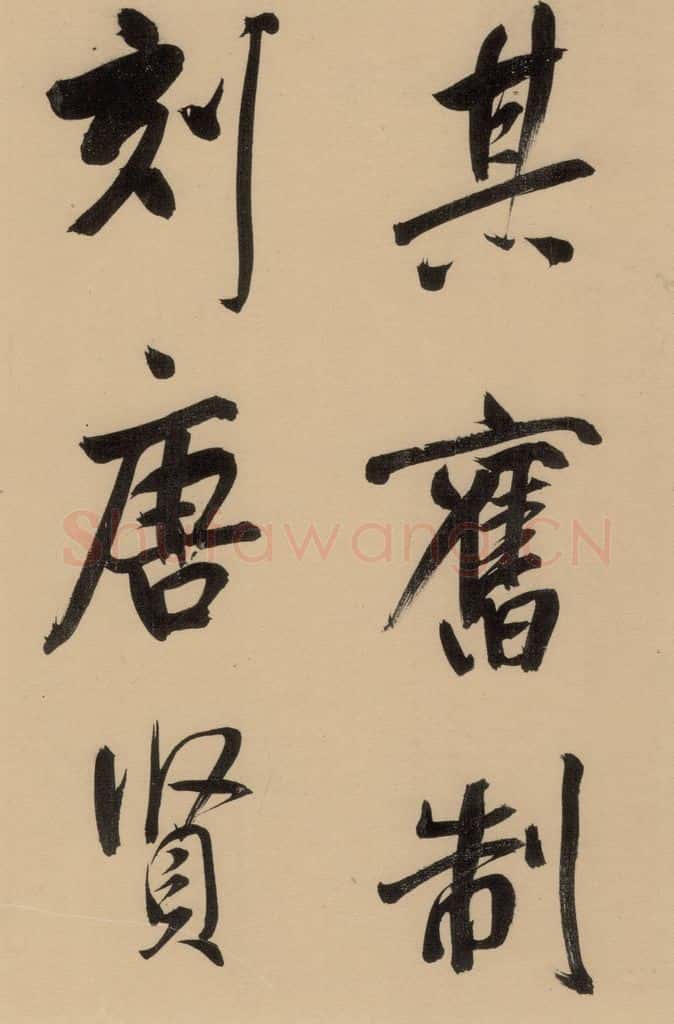 其舊制
刻唐贤
Shufawang.CN